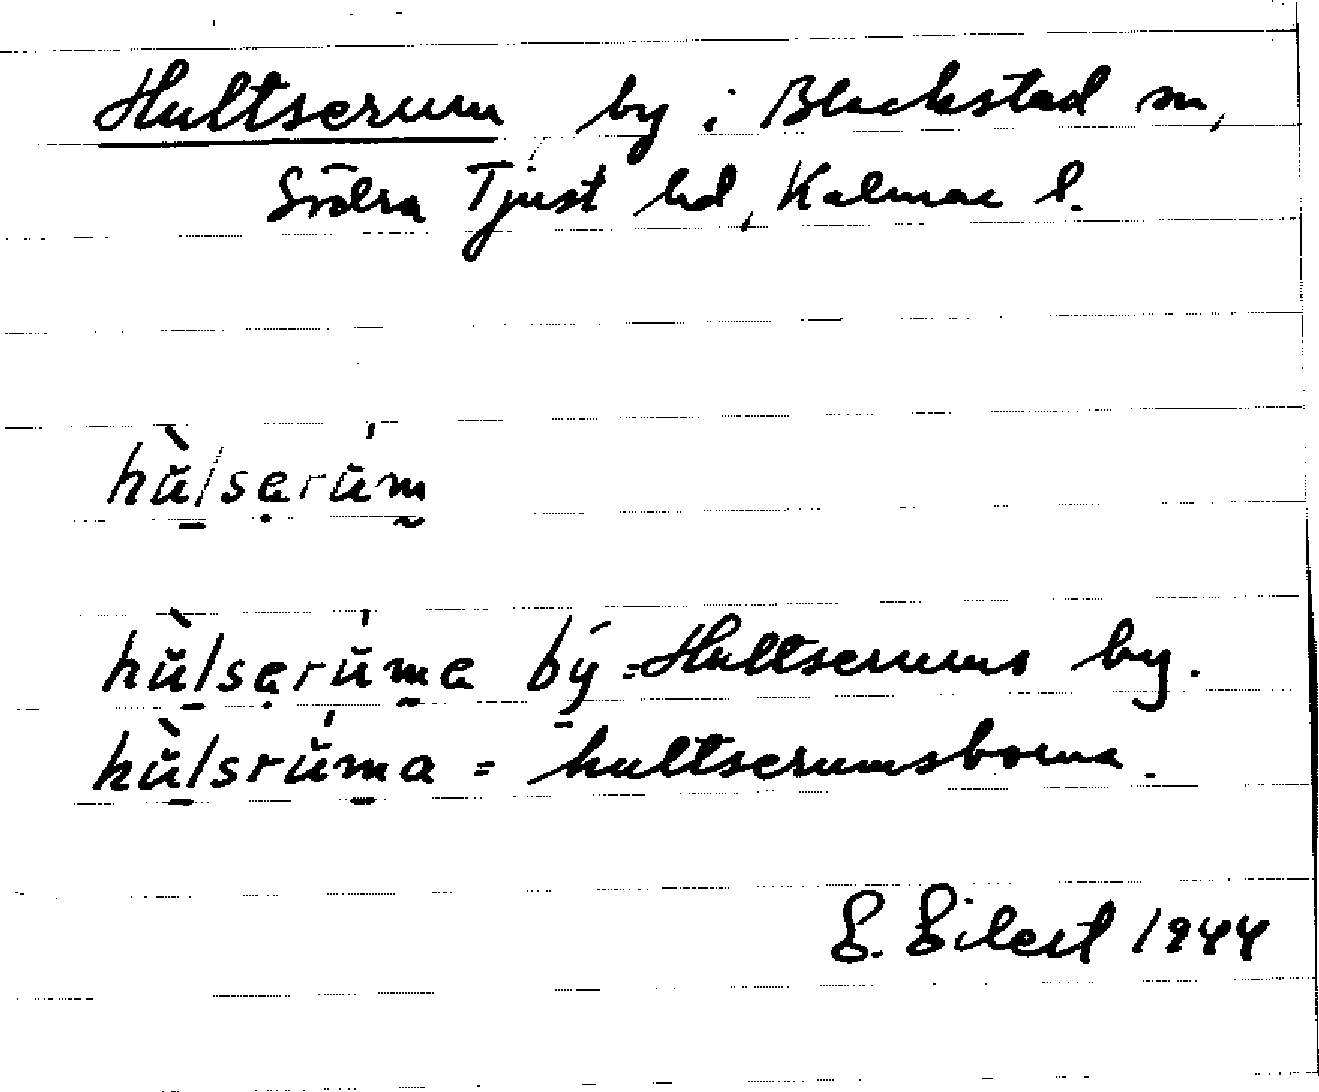 Hultserum by i Blackstad sn,
Södra Tjust hd, Kalmar l.
hùlserúm
hùlserúma bý = Hultserums by.
hùlsrúma = hultserumsborna.
1944